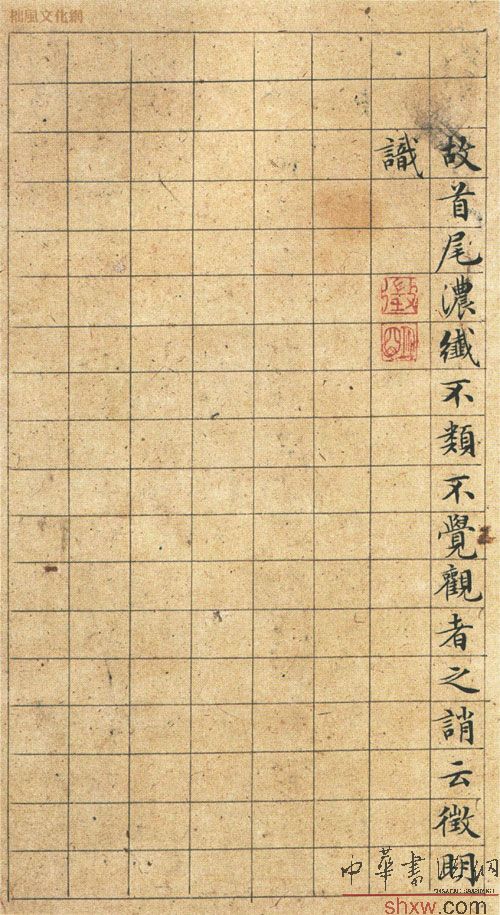 拙風文化網
故首尾濃纖不類不覺觀者之誚云徵明
識
徵
明
中華書法網
shxw.com